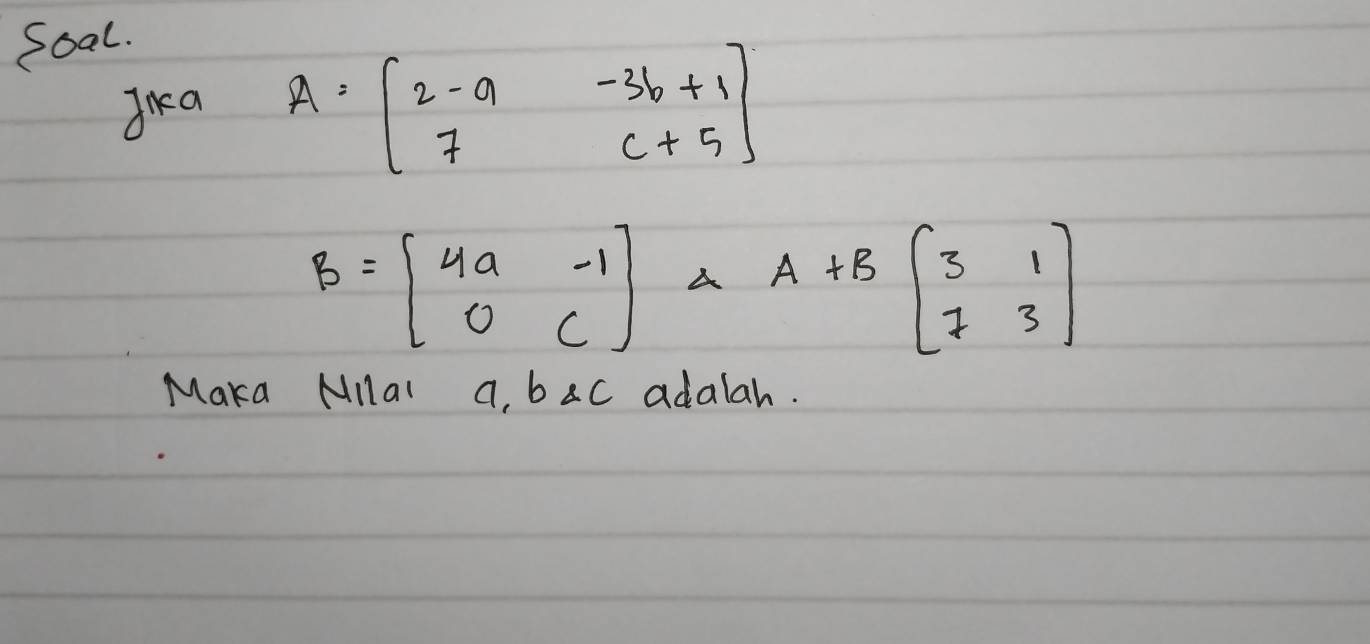 Soal.
Jika A = [ 2 - a -3b + 1
7 c + 5 ]
B = [ 4a -1
0 c ] & A + B [ 3 1
7 3 ]
Maka Nilai a, b & c adalah.